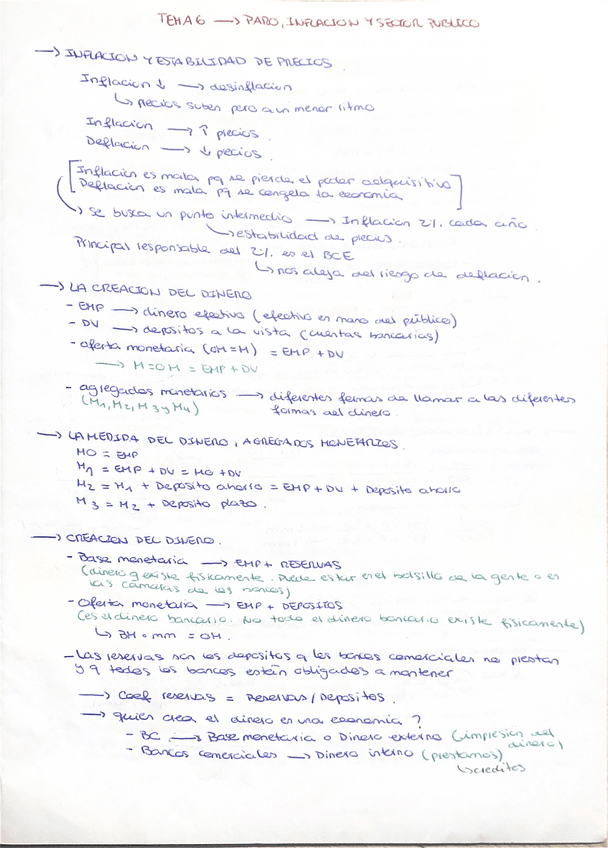 TEMA 6 → PARO, INFLACION Y SECTOR PUBLICO
→ INFLACION Y ESTABILIDAD DE PRECIOS.
Inflacion ↓ → desinflacion
↳ precios suben pero a un menor ritmo
Inflacion → ↑ precios.
Deflacion → ↓ pecios.
Inflacion es mala pq se pierde el poder adquisitivo
Deflacion es mala pq se congela la economia
↳ Se busca un punto intermedio → Inflacion 2%. cada año
↳ estabilidad de precios.
Principal responsable del 2% es el BCE
↳ nos aleja del riesgo de deflacion.
→ LA CREACION DEL DINERO
- EMP → dinero efectivo (efectivo en mano del público)
- DV → depositos a la vista (cuentas bancarias)
- oferta monetaria (OM=M) = EMP + DV
→ M=OM = EMP + DV
- agregados monetarios → diferentes formas de llamar a las diferentes
(M1, M2, M3 y M4) formas del dinero.
→ LA MEDIDA DEL DINERO, AGREGADOS MONETARIOS.
M0 = EMP
M1 = EMP + DV = M0 + DV
M2 = M1 + Deposito ahorro = EMP + DV + Deposito ahorro
M3 = M2 + Deposito plazo.
→ CREACION DEL DINERO.
- Base monetaria → EMP + RESERVAS
(dinero q existe fisicamente. Puede estar en el bolsillo de la gente o en
las cámaras de los bancos)
- Oferta monetaria → EMP + DEPOSITOS
(es el dinero bancario. No todo el dinero bancario existe físicamente)
↳ BM · mm = OM.
- Las reservas son los depositos q los bancos comerciales no prestan
y q todos los bancos están obligados a mantener
→ Coef reservas = Reservas / Depositos.
→ quien crea el dinero en una economia?
- BC. → Base monetaria o Dinero externo (impresion del
dinero)
- Bancos comerciales → Dinero interno (prestamos)
↳ creditos